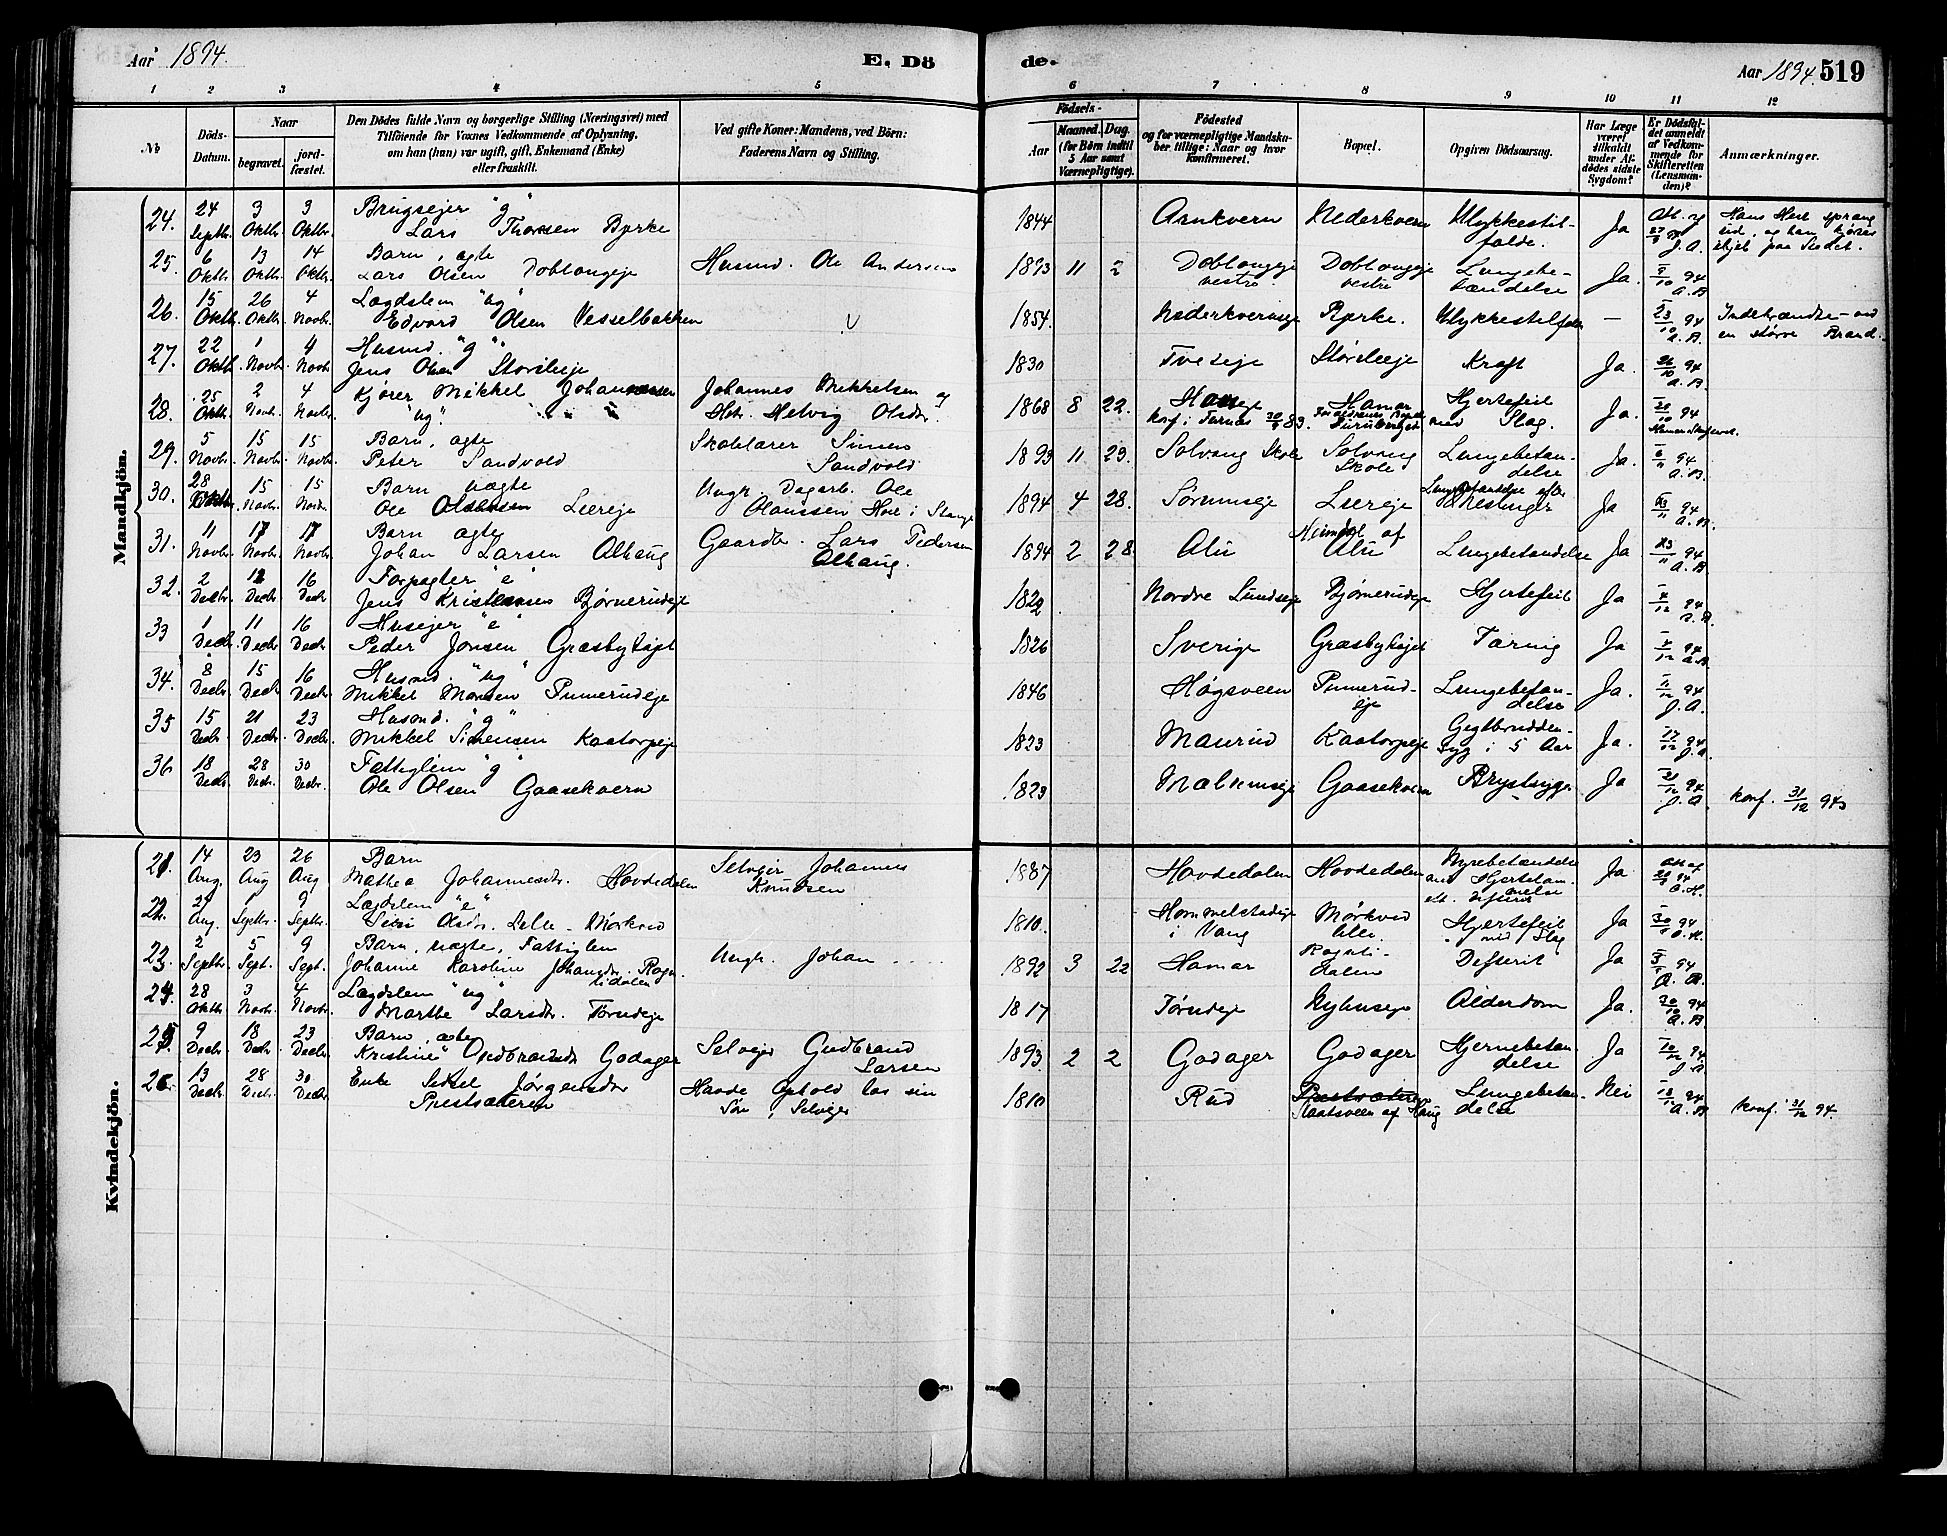 Aar 1894.
E. Dö
de.
Aar 1894. 519
1 2 3 4 5 6 7 8 9 10 11 12
No
Döds-Datum.
Naar
begravet.
jord-fæstet.
Den Dödes fulde Navn og borgerlige Stilling (Næringsvei) med
Tilföiende for Voxnes Vedkommende af Oplysning,
om han (hun) var ugift, gift, Enkemand (Enke)
eller fraskilt.
Ved gifte Koner: Mandens, ved Börn:
Faderens Navn og Stilling.
Födsels-
Aar
Maaned. Dag.
(for Börn indtil
5 Aar samt
Værnepligtige).
Födested
og for værnepligtige Mandskaber tillige: Naar og hvor
konfirmeret.
Bopæl.
Opgiven Dödsaarsag.
Har Læge
været
tilkaldt
under Afdödes sidste
Sygdom?
Er Dödsfaldet anmeldt
af Vedkommende for
Skifteretten
(Lensmanden)?
Anmærkninger.
Mandkjön.
24. 24 Septbr. 3 Oktbr. 3 Oktbr. Brugseier "g" Lars Thorsen Byrke 1844 Arnkvern Nederkvern Ulykkestilfælde. Ja
25. 6 Oktbr. 13 Oktbr. 14 Oktbr. Barn, ægte Lars Olsen Doblougeje Husmd. Ole Andersen 1893 11 2 Doblougeje vestre Doblougeje vestre Lungebetændelse Ja. 8/10 94 A.B
26. 15 Oktbr. 26 Oktbr. 4 Novbr. Lægdslem "ug" Edvard Olsen Vesselbakken 1854. Byrke. Ulykkestilfælde — 23/10 94 A.B. Indebrændte ved en större Brand.
27. 22 Oktbr. 1 Novbr. 4 Novbr. Husmd. "g" Jens Olsen Storsleeje 1830 Tveseje Storsleeje Kræft Ja. 26/10 94 A.B
28. 25 Oktbr. 2 Novbr. 4 Novbr. Kjörer Mikkel Johannessen "ug". Johannes Mikkelsen og Hstr. Helvig Olsdr. 1868 8 22. Konf. i Furnæs 30/9 83. Hamar Hjertefeil med Slag. Ja. 94
29. 5 Novbr. 15 Novbr. 15 Novbr. Barn, ægte Peter Sandvold Skolelærer Simen Sandvold 1893 11 23. Solvang Skole Solvang Skole Lungebetændelse Ja. 6/11 94 A.B
30. 28 Oktbr. 15 Novbr. 15 Novbr. Barn uægte Ole Leereje Ungk. Dagarb. Ole Olaussen Hoel i Stange 1894 4 28. Sörumseje Leereje Lungebetændelse efter Meslinger Ja 94 A.B.
31. 11 Novbr. 17 Novbr. 17 Novbr. Barn ægte Johan Larsen Alhaug Gaardbr. Lars Pedersen Alhaug. 1894 2 28 Alu Heimdal af Alu Lungebetændelse Ja 94 A.B
32. 2 Decbr. 12 Decbr. 16 Decbr. Forpagter "e" Jens Kristiansen Björnerudeje 1822 Nordre Lundseje Björnerudeje Hjertefeil Ja 4/12 94 A.B.
33 1 Decbr. 11 Decbr. 16 Decbr. Huseier "e" Peder Jonsen Græsbyhöjet 1826 Sverige Græsbyhöjet Tæring Ja 4/12 94 A.B
34. 8 Decbr. 15 Decbr. 16 Decbr. Husmd. "ug" Mikkel Monsen Pumerudeje 1846 Högsveen Pumerudeje Lungebetændelse Ja. 11/12 94 J.A.
35 15 Decbr. 21 Decbr. 23 Decbr. Husmd. "g" Mikkel Simensen Kaatorpeje 1823 Maurud Kaatorpeje Gigtbrudden syg i 5 Aar Ja. 17/12 94 J.A
36 18 Decbr. 28 Decbr. 30 Decbr. Fattiglem "g" Ole Olsen Gaasekvern 1823 Mælumseje Gaasekvern Brystsyge Ja 21/12 94 J.A. konf. 31/12 94
Kvindekjön.
21 14 Aug. 23 Aug 26 Aug Barn Mathea Johannesdr. Hovdedalen Selveier Johannes Knudsen 1887 Hovdedalen Hovdedalen Nyrebetændelse Ja
22. 29 Aug. 7 Septbr. 9 Septbr. Lægdslem "e" Siri Olsdr. Lille-Mörkved 1810. Hommelstadeje i Vang Mörkved lille. Hjertefeil med Slag Ja 30/8 94
23. 2 Septbr. 5 Sept. 9 Sept. Barn, uægte, Fattiglem Johanne Karoline Johansdr. Ragnlidalen Ungk. Johan .... 1892 3 22 Hamar Ragnlidalen Difterit Ja 94
24. 28 Oktbr. 3 Novbr. 4 Novbr. Lægdslem "ug" Marthe Larsdr. Törudeje 1817 Törudeje Nyhuseje Alderdom Ja. 30/10 94 A.B
25. 9 Decbr. 18 Decbr. 23 Decbr. Barn, ægte Kristine Gudbrandsdr. Godager Selveier Gudbrand Larsen 1893. 2 2 Godager Godager Hjernebetændelse Ja 10/12 94 J.A
26. 13 Decbr. 28 Decbr. 30 Decbr. Enke Sidsel Jörgensdr Prestsæteren Havde Ophold hos sin Sön, Selveier 1810 Rud Staatsveen af Haug Lungebetændelse Nei 18/12 94 A.B konf. 31/12 94.